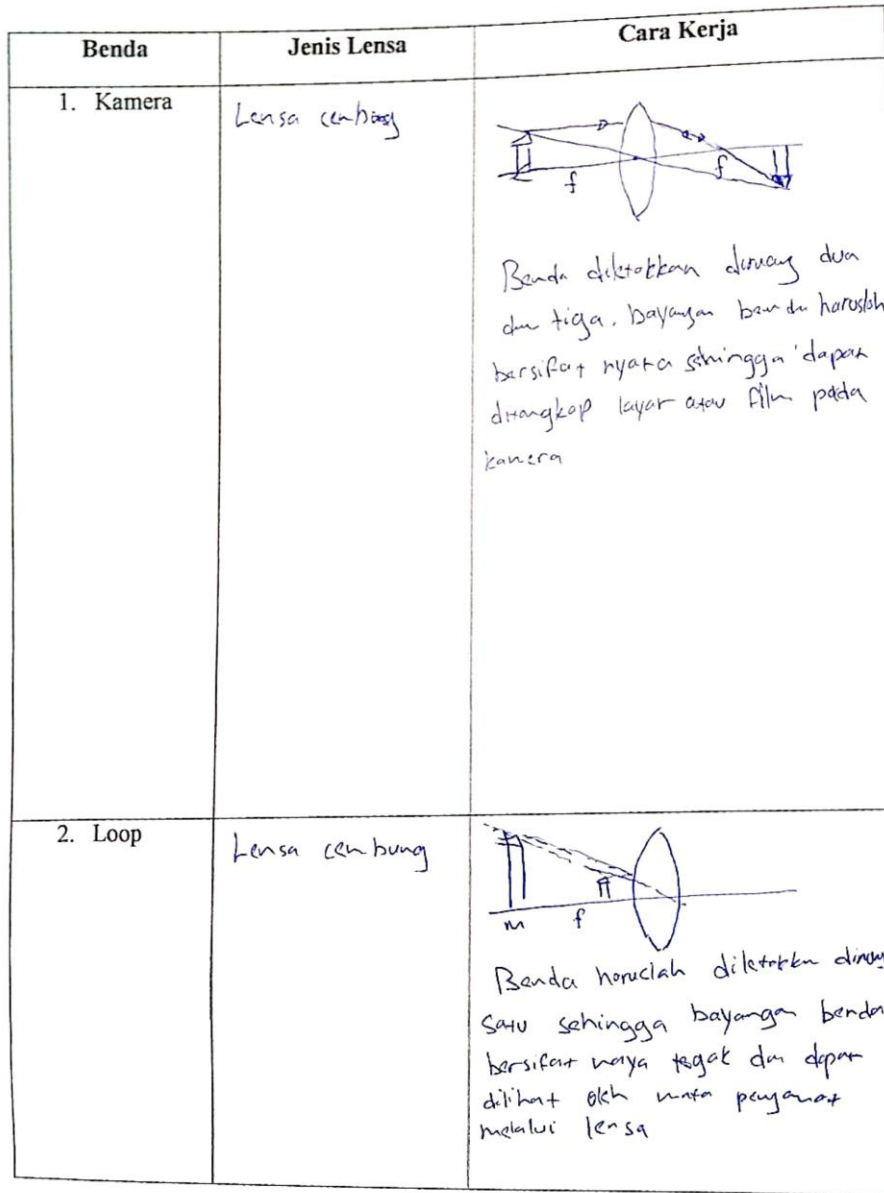 Benda Jenis Lensa Cara Kerja
1. Kamera Lensa cembung
f f
Benda diletakkan diruang dua
dan tiga. bayangan benda haruslah
bersifat nyata sehingga dapat
ditangkap layar atau film pada
kamera
2. Loop Lensa cembung
m f
Benda haruslah diletakkan diruang
satu sehingga bayangan benda
bersifat maya tegak dan dapat
dilihat oleh mata pengamat
melalui lensa